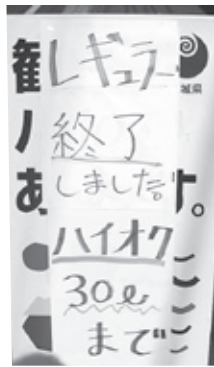 レギュラー
終了
しました。
ハイオク
30ℓ
まで